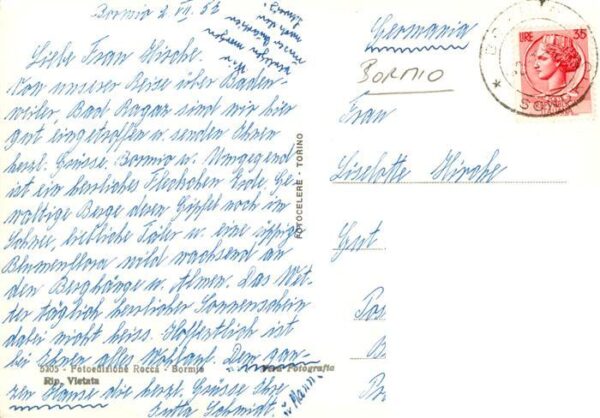 Bormio 2 VII. 53
Liebe Frau Hirche.
Von unserer Reise über Baden-
weiler, Bad Ragaz sind wir hier
gut eingetroffen u. senden Ihnen
herzl. Grüsse. Bormio u. Umgegend
ist ein herrliches Fleckchen Erde. Ge-
waltige Berge deren Gipfel noch im
Schnee, liebliche Täler u. eine üppige
Blumenflora wild wachsend an
den Berghängen u. Almen. Das Wet-
ter täglich herrlicher Sonnenschein
dabei nicht heiss. Hoffentlich ist
bei Ihnen alles wohlauf. Dem gan-
zen Hause die herzl. Grüsse Ihre
Jutta Schmidt.
u. Mann
Wir
morgen
5305 - Fotoedizione Rocca - Bormio
Vera Fotografia
Rip. Vietata
FOTOCELERE - TORINO
Germania
BORMIO
LIRE 35
SOND
Frau
Liselotte Hirche
Gut
Pos
B